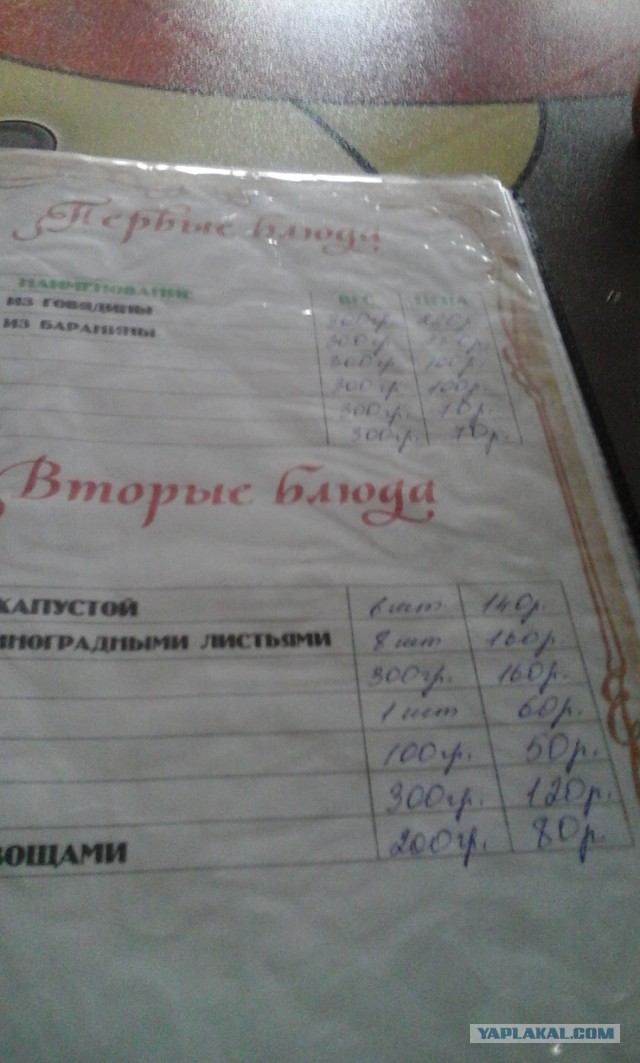 Первые блюда
НАИМЕНОВАНИЕ ВЕС ЦЕНА
ИЗ ГОВЯДИНЫ 300гр.
ИЗ БАРАНИНЫ 300гр.
300гр. 100р.
300гр. 100р.
300гр. 70р.
300гр. 70р.
Вторые блюда
КАПУСТОЙ 6 шт 140р.
ИНОГРАДНЫМИ ЛИСТЬЯМИ 8 шт 160р.
300гр. 160р.
1 шт 60р.
100гр. 50р.
300гр. 120р.
ВОЩАМИ 200гр. 80р.
YAPLAKAL.COM